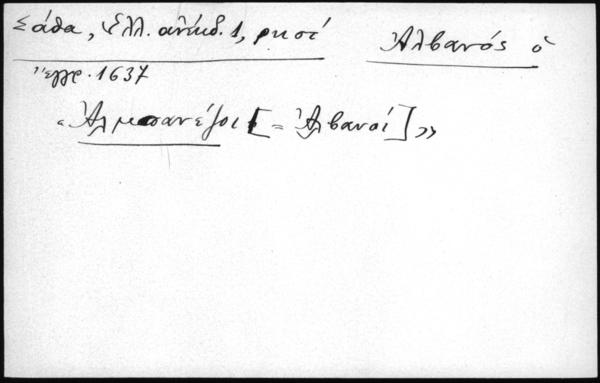 Σάθα, Ἑλλ. ἀνέκδ. 1, ρκστ΄ Ἀλβανός ὁ
Ἔγγρ. 1637
«Ἀλμπανέζοι [= Ἀλβανοί]»